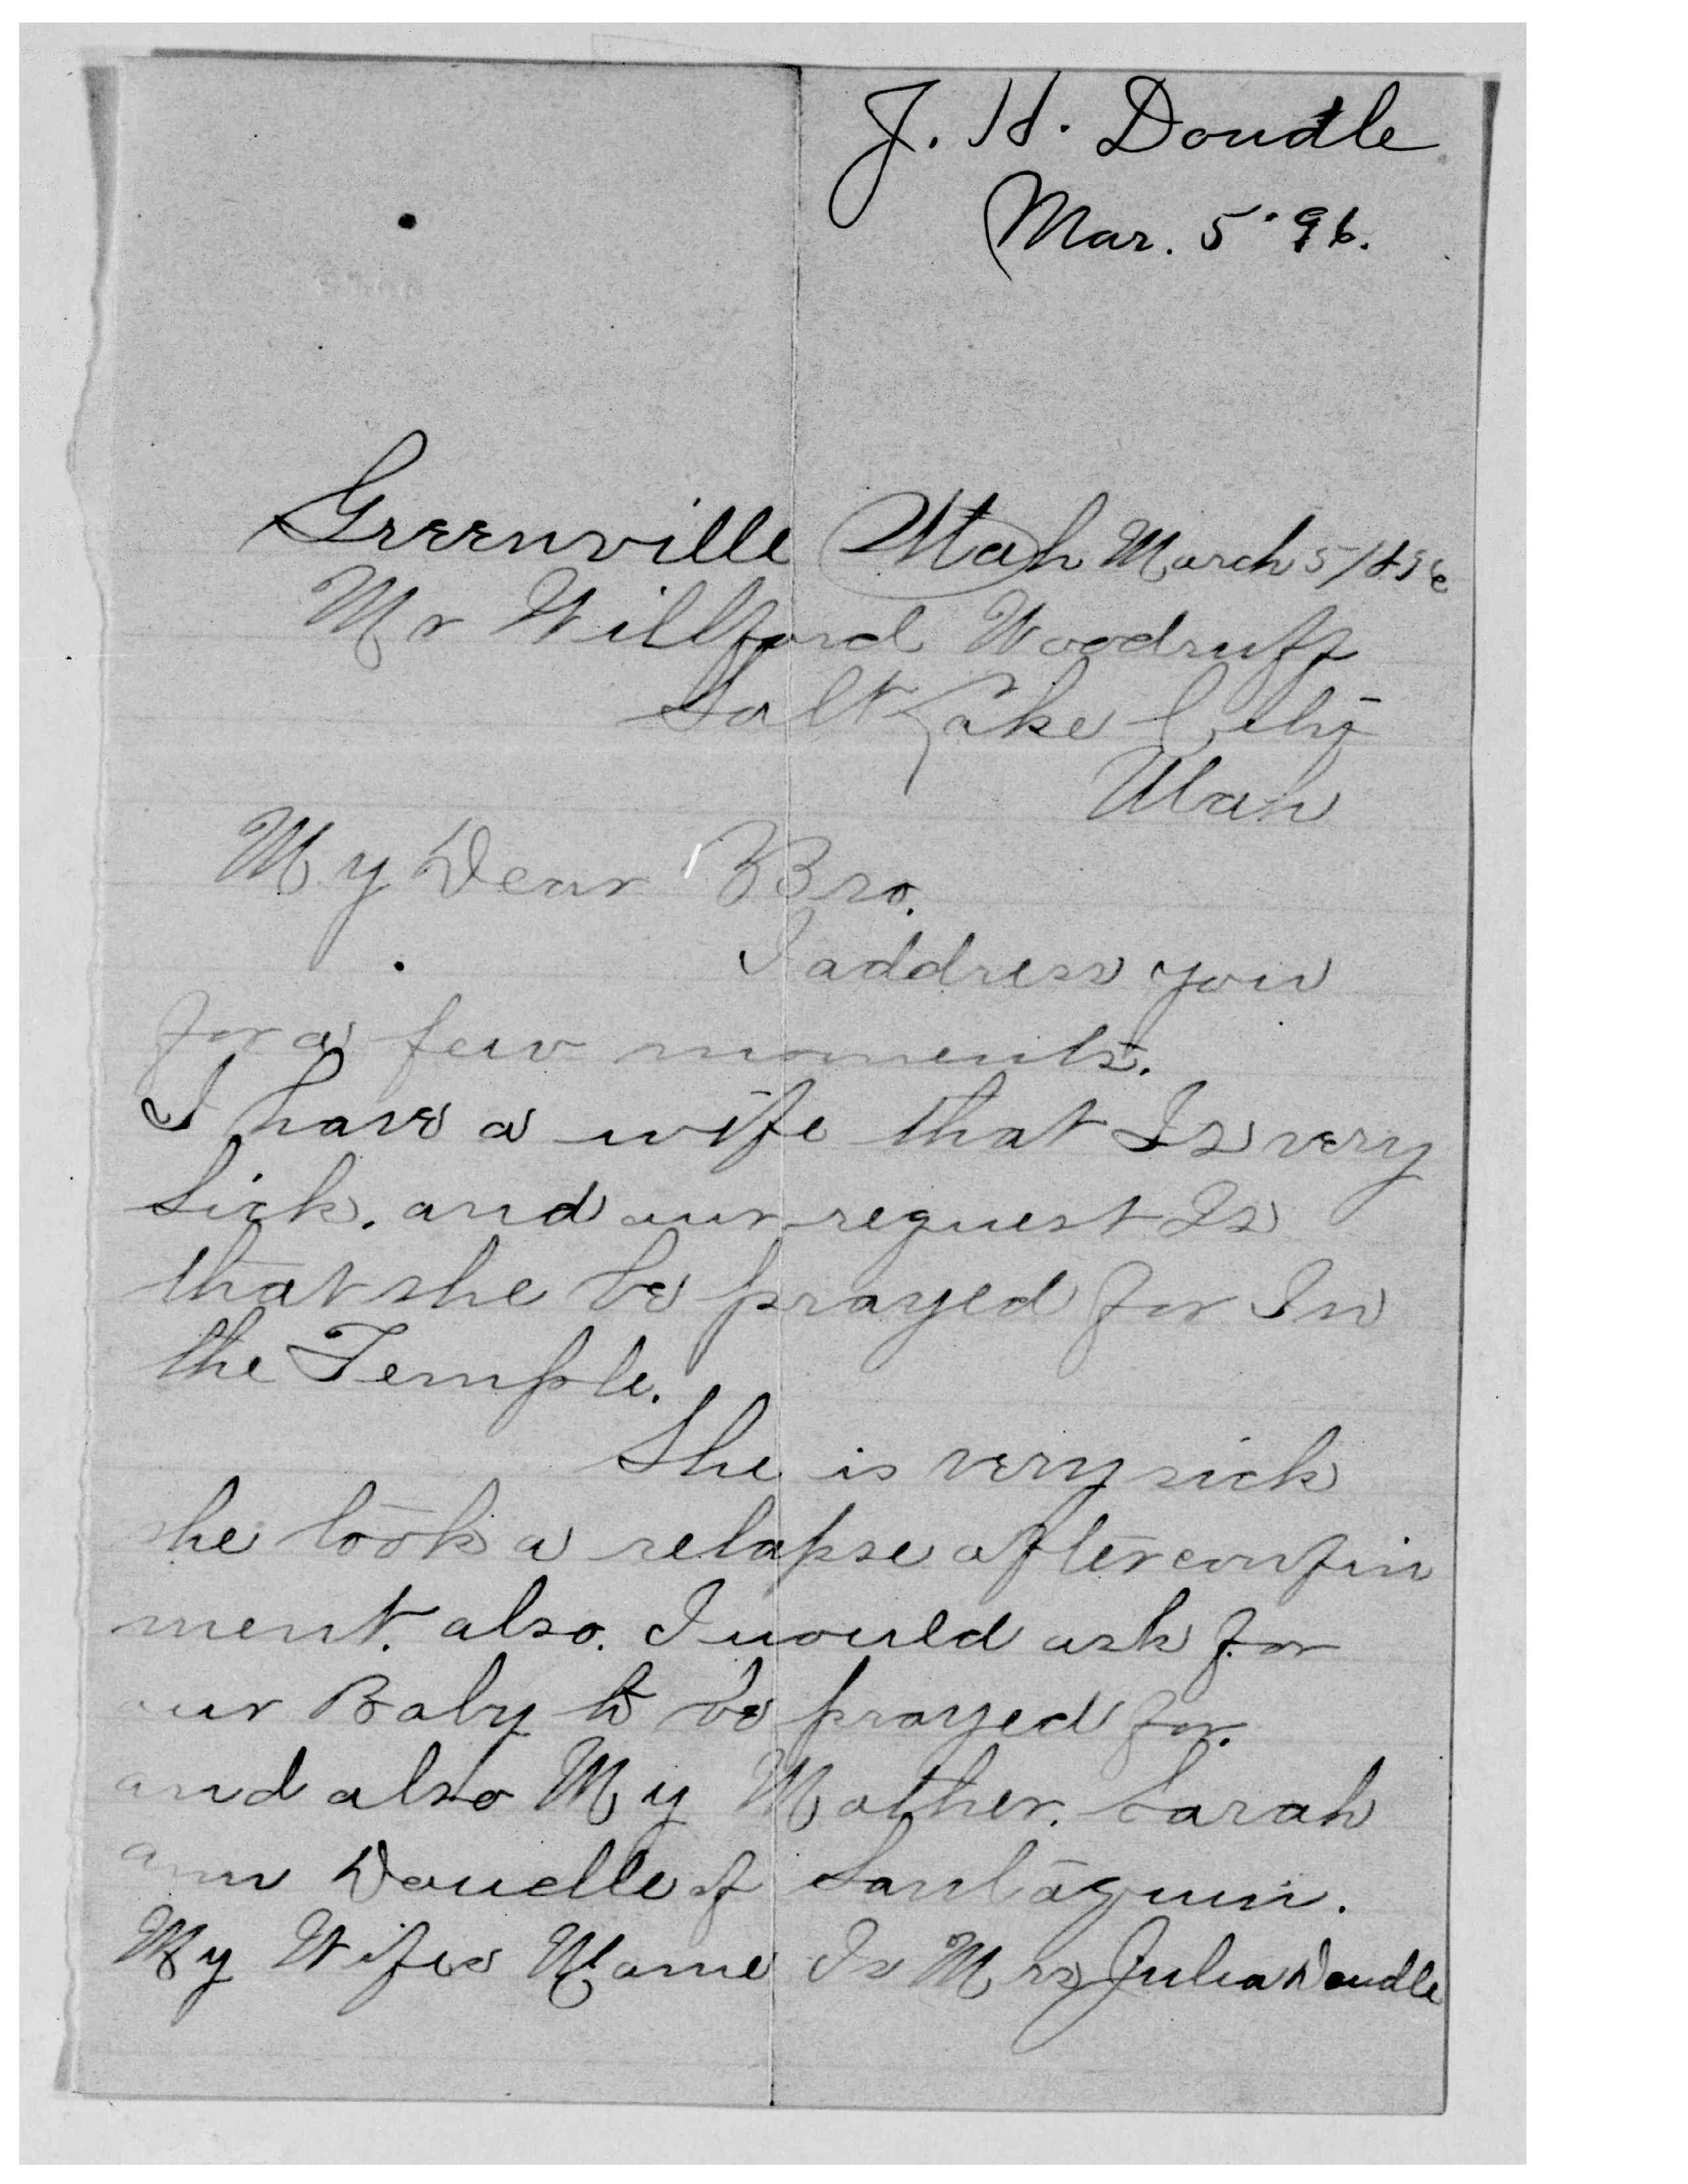 J. H. Doudle
Mar. 5 '96.
Greenville Utah March 5/1896
Mr Willford Woodruff
Salt Lake City
Utah
My Dear Bro.
I address you
for a few moments.
I have a wife that Is very
sick. and our request Is
that she be prayed for In
the Temple.
She is very sick
she took a relapse after confin
ment. also. I would ask for
our Baby to be prayed for.
and also My Mother. Sarah
ann Doudle of Santaquin.
My Wifes Name Is Mrs Julia Doudle